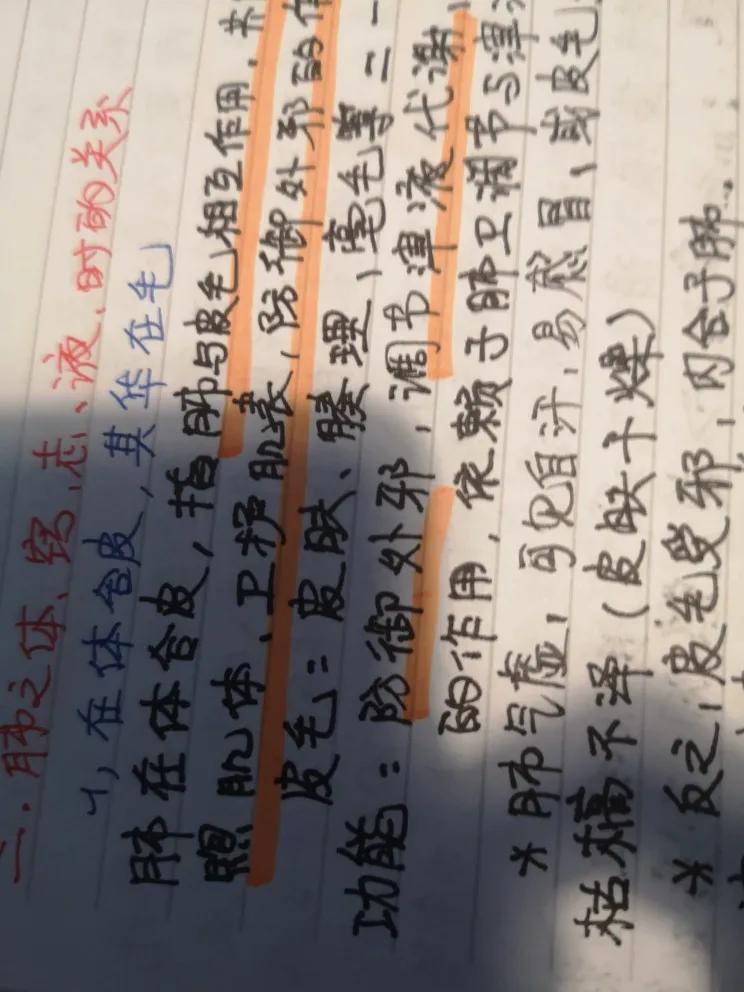 二.肺之体、窍、志、液、时的关系
1,在体合皮,其华在毛
肺在体合皮,指肺与皮毛相互作用,共
照肌体、卫护肌表,防御外邪的作
皮毛:皮肤、腠理、毫毛等二一
功能:防御外邪,调节津液代谢、
的作用,依赖于肺卫调节与津
*肺气虚,可见自汗,易感冒,或皮毛
枯槁不泽(皮肤干燥)
*反之,皮毛受邪,内合于肺...